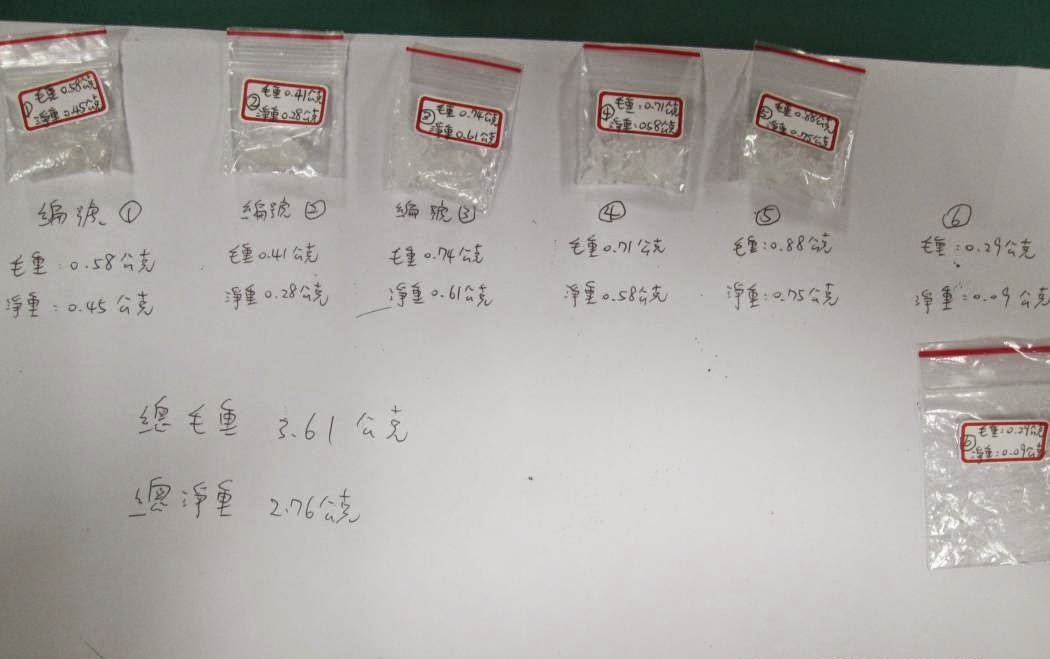 ① 毛重 0.58公克
淨重 0.45公克
② 毛重 0.41公克
淨重 0.28公克
③ 毛重 0.74公克
淨重 0.61公克
④ 毛重:0.71公克
淨重:0.58公克
⑤ 毛重:0.88公克
淨重:0.75公克
編號 ①
毛重:0.58公克
淨重:0.45公克
編號 ②
毛重 0.41公克
淨重 0.28公克
編號 ③
毛重 0.74公克
淨重 0.61公克
④
毛重 0.71公克
淨重 0.58公克
⑤
毛重:0.88公克
淨重:0.75公克
⑥
毛重:0.29公克
淨重:0.09公克
⑥ 毛重:0.29公克
淨重:0.09公克
總毛重 3.61 公克
總淨重 2.76公克